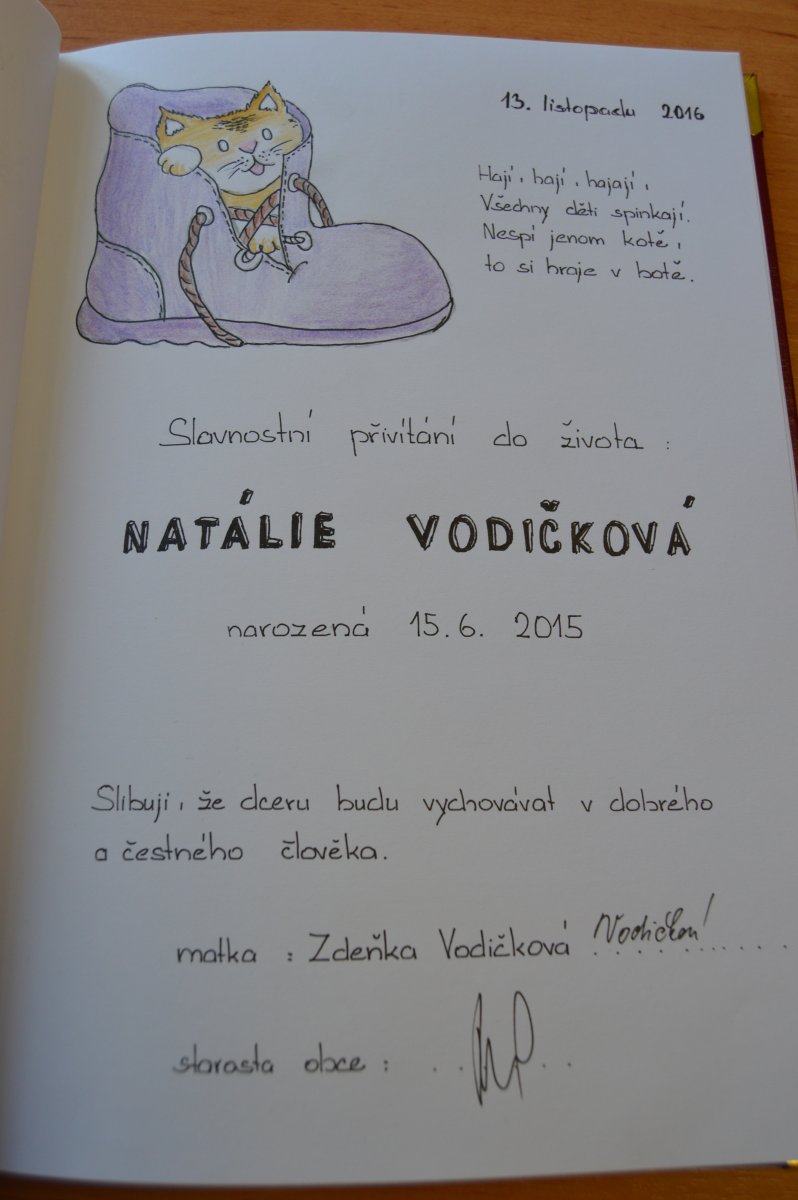 13. listopadu 2016
Hají, hají, hajají,
Všechny děti spinkají.
Nespí jenom kotě,
to si hraje v botě.
Slavnostní přivítání do života :
NATÁLIE VODIČKOVÁ
narozená 15.6. 2015
Slibuji, že dceru budu vychovávat v dobrého
a čestného člověka.
matka : Zdeňka Vodičková
starosta obce :